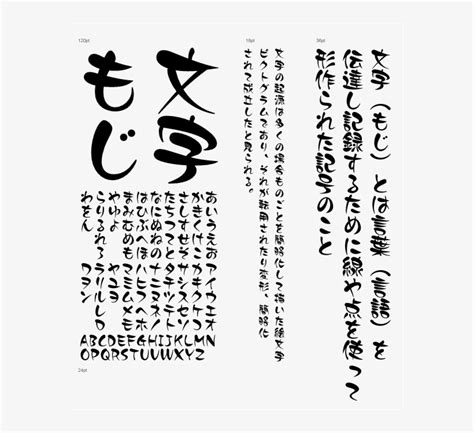 120pt
文字
もじ
あいうえお アイウエオ
かきくけこ カキクケコ
さしすせそ サシスセソ
たちつてと タチツテト
なにぬねの ナニヌネノ
はひふへほ ハヒフヘホ
まみむめも マミムメモ
やゆよ ヤユヨ
らりるれろ ラリルレロ
わをん ワヲン
ABCDEFGHIJKLMN
OPQRSTUVWXYZ
24pt
36pt
文字（もじ）とは言葉（言語）を
伝達し記録するために線や点を使って
形作られた記号のこと
文字の起源は多くの場合ものごとを簡略化して描いた絵文字
ピクトグラムであり、それが転用されたり変形、簡略化
されて成立したと見られる。